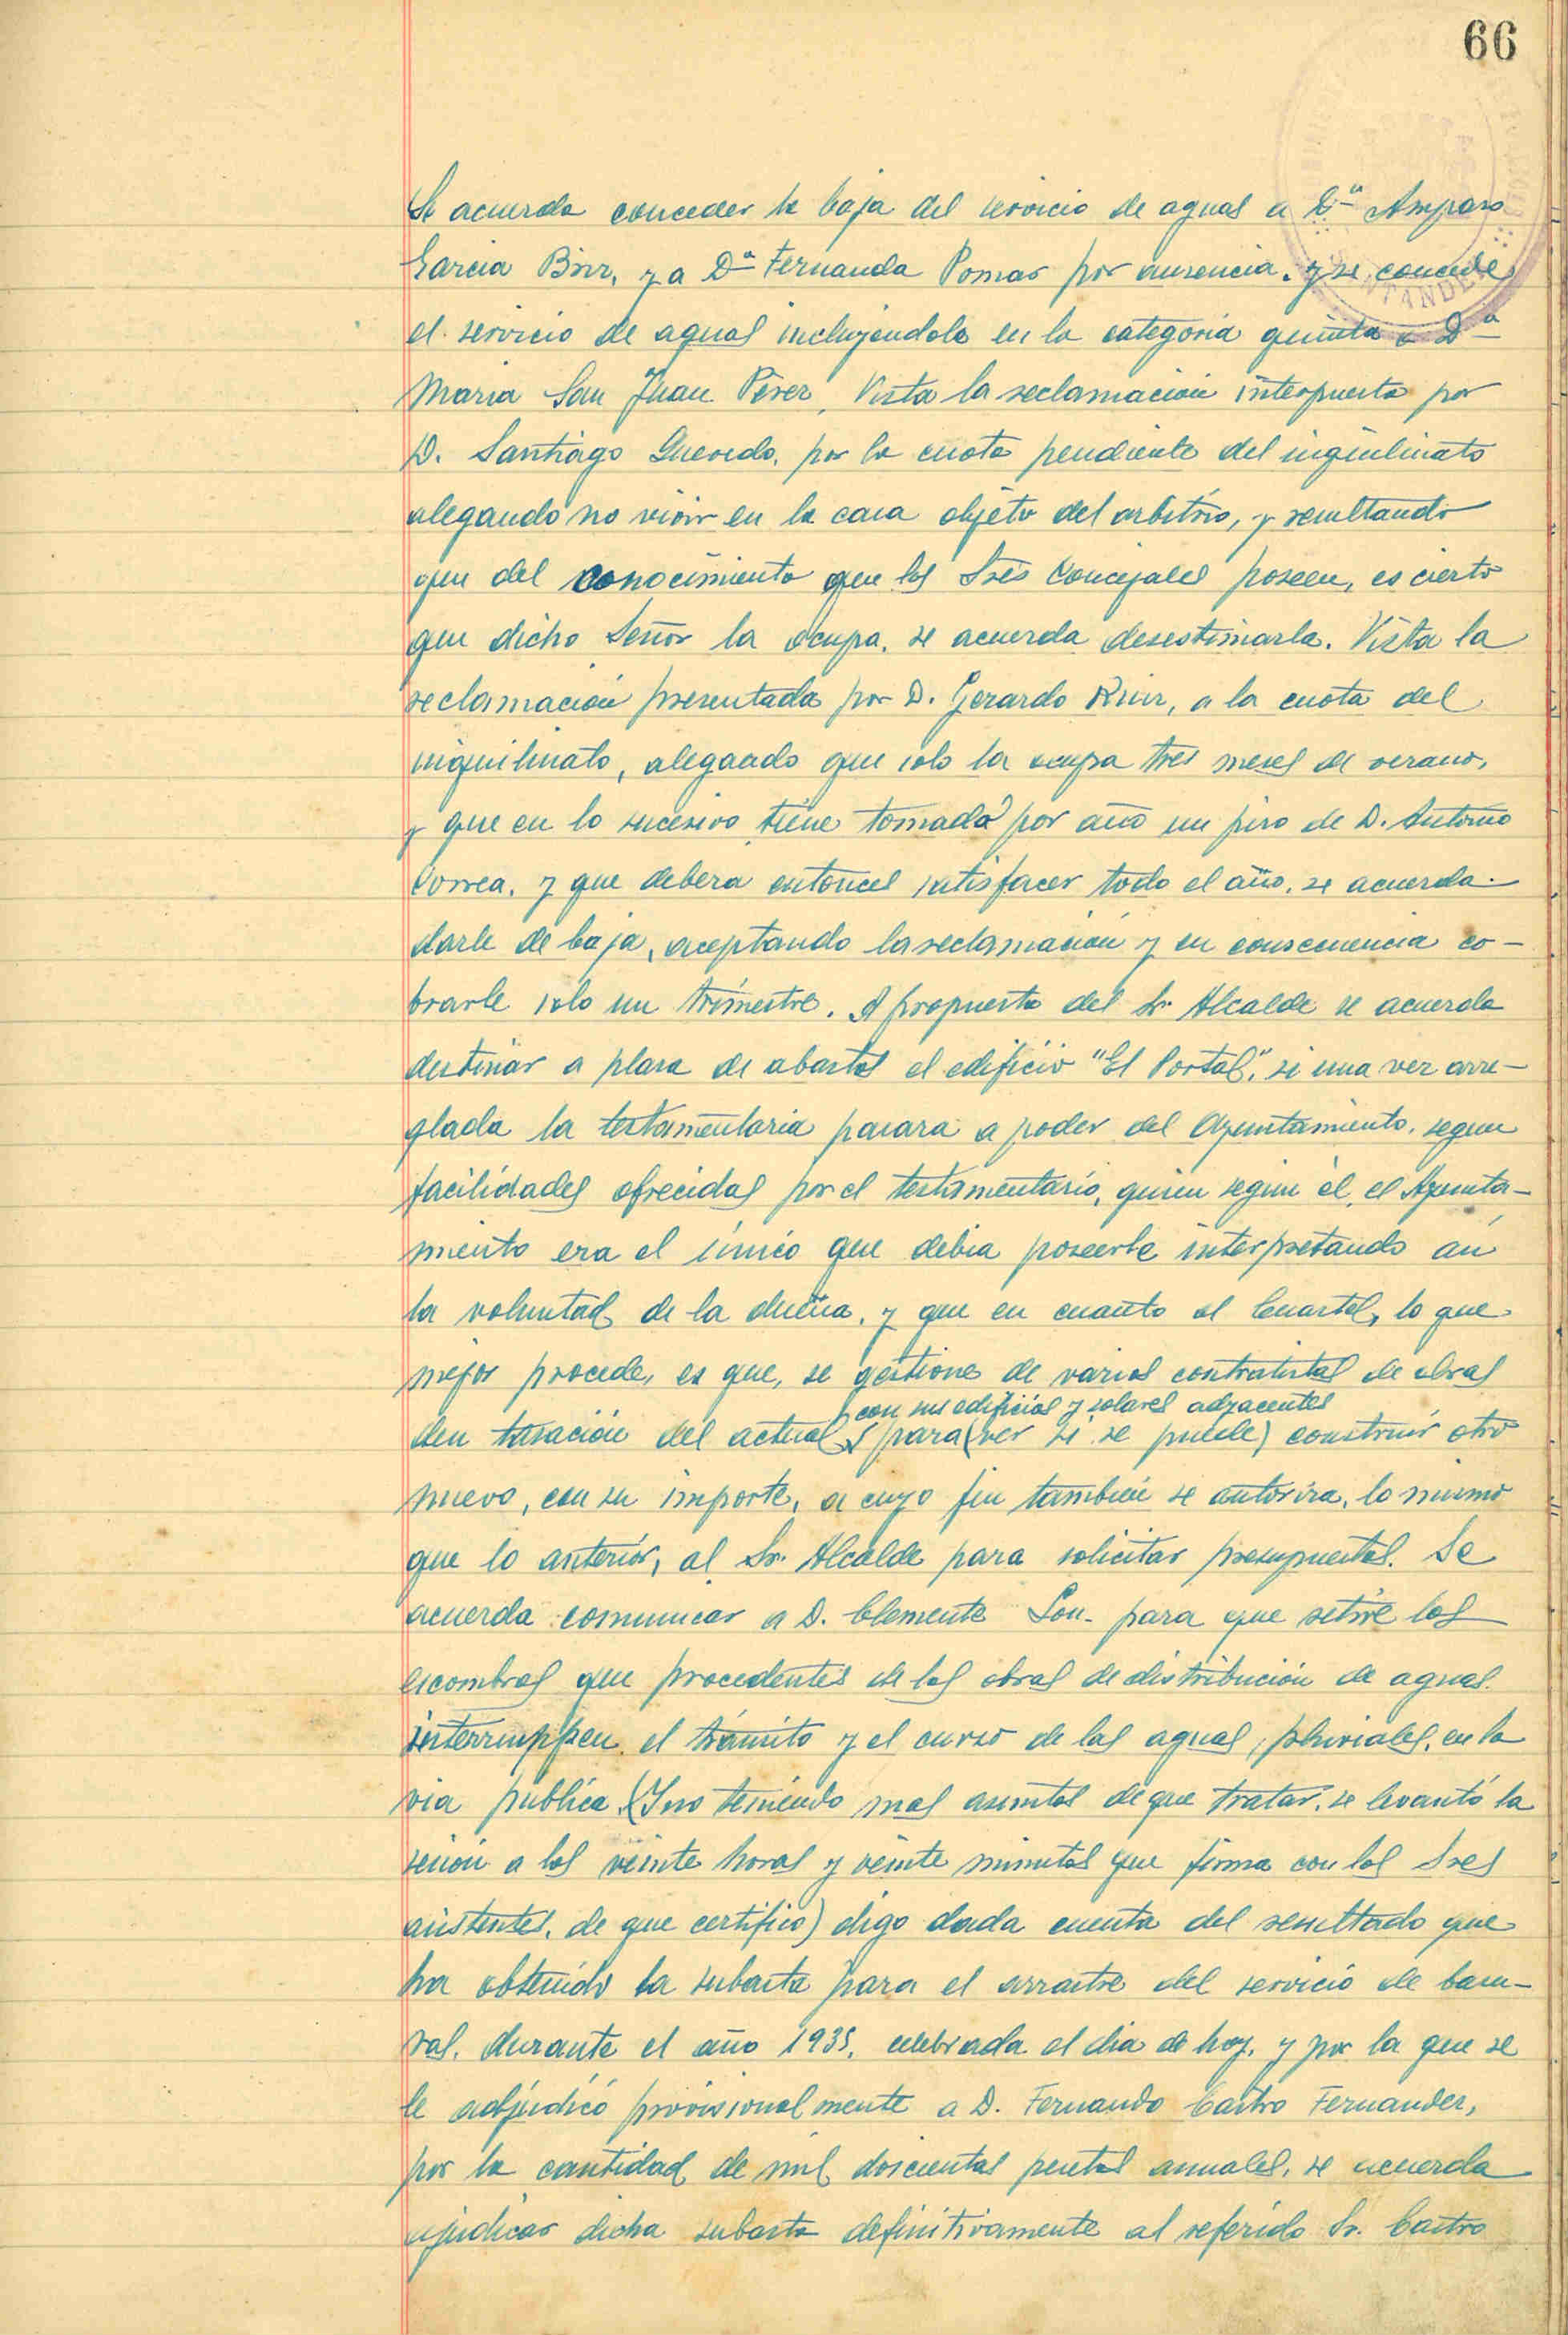 66
Se acuerda conceder la baja del servicio de aguas a Dª Amparo
Garcia Briz, y a Dª Fernanda Pomar por ausencia. y se concede
el servicio de aguas incluyendola en la categoria quinta a Dª
Maria San Juan Pérez, Vista la reclamación interpuesta por
D. Santiago Quevedo, por la cuota pendiente del inquilinato
alegando no vivir en la casa objeto del arbitrio, y resultando
que del conocimiento que los Sres Concejales poseen, es cierto
que dicho Señor la ocupa, se acuerda desestimarla. Vista la
reclamación presentada por D. Gerardo Ruiz, a la cuota del
inquilinato, alegando que solo la ocupa tres meses de verano,
y que en lo sucesivo tiene tomado por año un piso de D. Antonio
Correa, y que debera entonces satisfacer todo el año, se acuerda
darle de baja, aceptando la reclamación y en consecuencia co-
brarle solo un trimestre. A propuesta del Sr Alcalde se acuerda
destinar a plaza de abastos el edificio "El Portal", si una vez arre-
glada la testamentaria pasara a poder del Ayuntamiento, segun
facilidades ofrecidas por el testamentario, quien segun él, el Ayunta-
miento era el único que debia poseerle interpretando asi
la voluntad de la dueña, y que en cuanto al Cuartel, lo que
mejor procede, es que, se gestione de varios contratistas de obras
con sus edificios y solares adyacentes
den tasación del actual para (ver si se puede) construir otro
nuevo, con su importe, a cuyo fin también se autoriza, lo mismo
que lo anterior, al Sr. Alcalde para solicitar presupuestos. Se
acuerda comunicar a D. Clemente para que retire los
escombros que procedentes de las obras de distribución de aguas
interrumppen el tránsito y el curso de las aguas, pluviales, en la
via pública. (Y no teniendo mas asuntos de que tratar, se levantó la
sesion a las veinte horas y veinte minutos que firma con los Sres
asistentes, de que certifico) digo dada cuenta del resultado que
ha obtenido la subasta para el arrastre del servicio de basu-
ras, durante el año 1935, celebrada el dia de hoy, y por la que se
le adjudicó provisionalmente a D. Fernando Castro Fernandez,
por la cantidad de mil doscientas pesetas anuales, se acuerda
ajudicar dicha subasta definitivamente al referido Sr. Castro